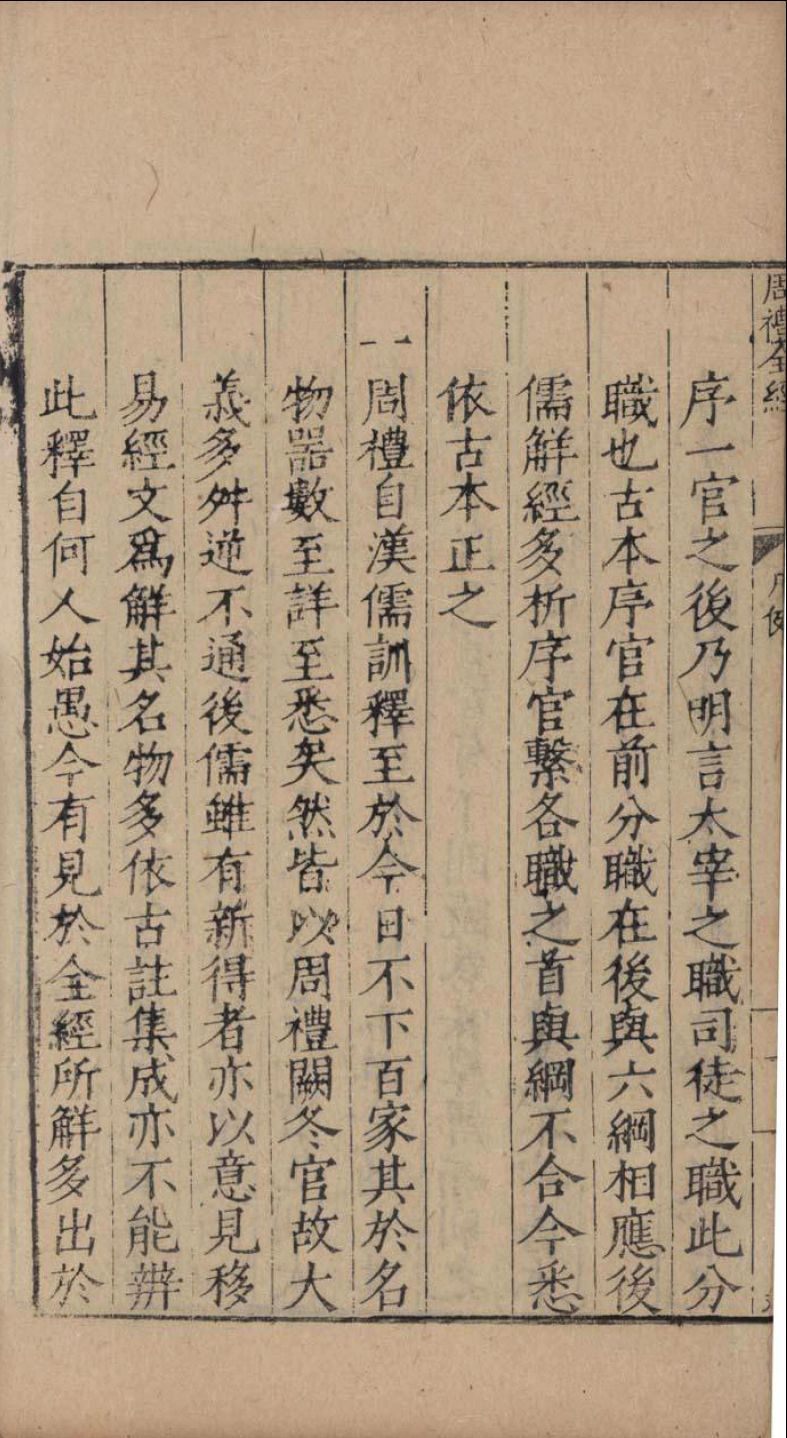 周禮全經
凡例
序一官之後乃明言太宰之職司徒之職此分
職也古本序官在前分職在後與六綱相應後
儒觧經多析序官繫各職之首與綱不合今悉
依古本正之
一周禮自漢儒訓釋至於今日不下百家其於名
物器數至詳至悉矣然皆以周禮闕冬官故大
義多舛逆不通後儒雖有新得者亦以意見移
易經文爲觧其名物多依古註集成亦不能辨
此釋自何人始愚今有見於全經所觧多出於